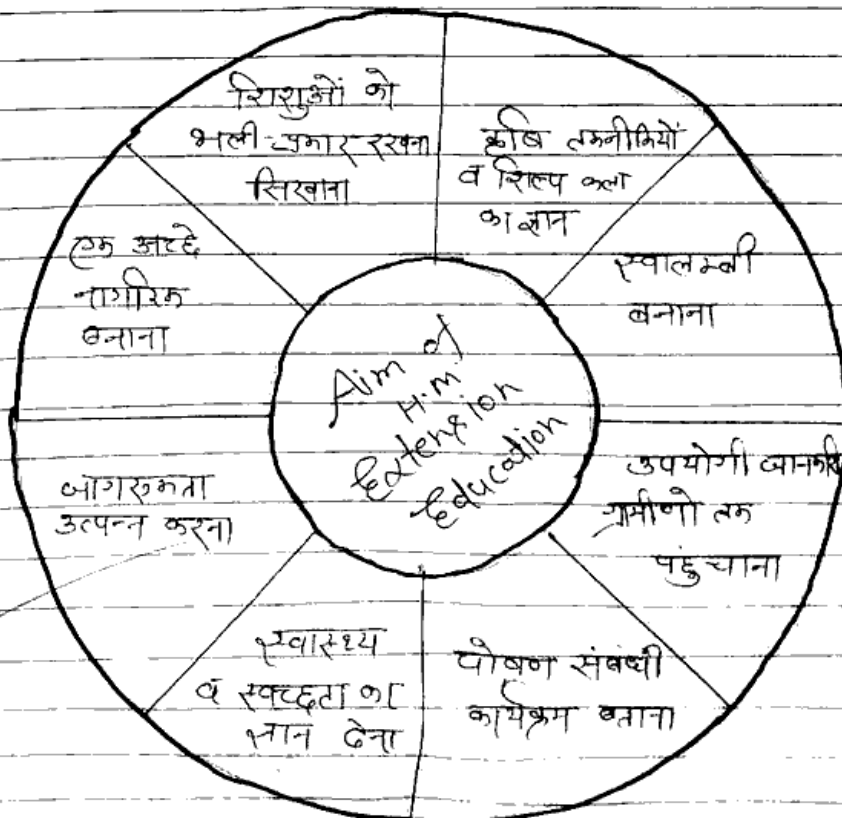 शिशुओं को
भली-प्रकार रखना
सिखाना
कृषि तकनीकियों
व शिल्प कला
का ज्ञान
स्वालम्बी
बनाना
उपयोगी जानकारी
ग्रामीणो तक
पहुंचाना
पोषण संबंधी
कार्यक्रम बताना
स्वास्थ्य
व स्वच्छता का
ज्ञान देना
जागरूकता
उत्पन्न करना
एक अच्छे
नागरिक
बनाना
Aim of
H.m
Extension
Education